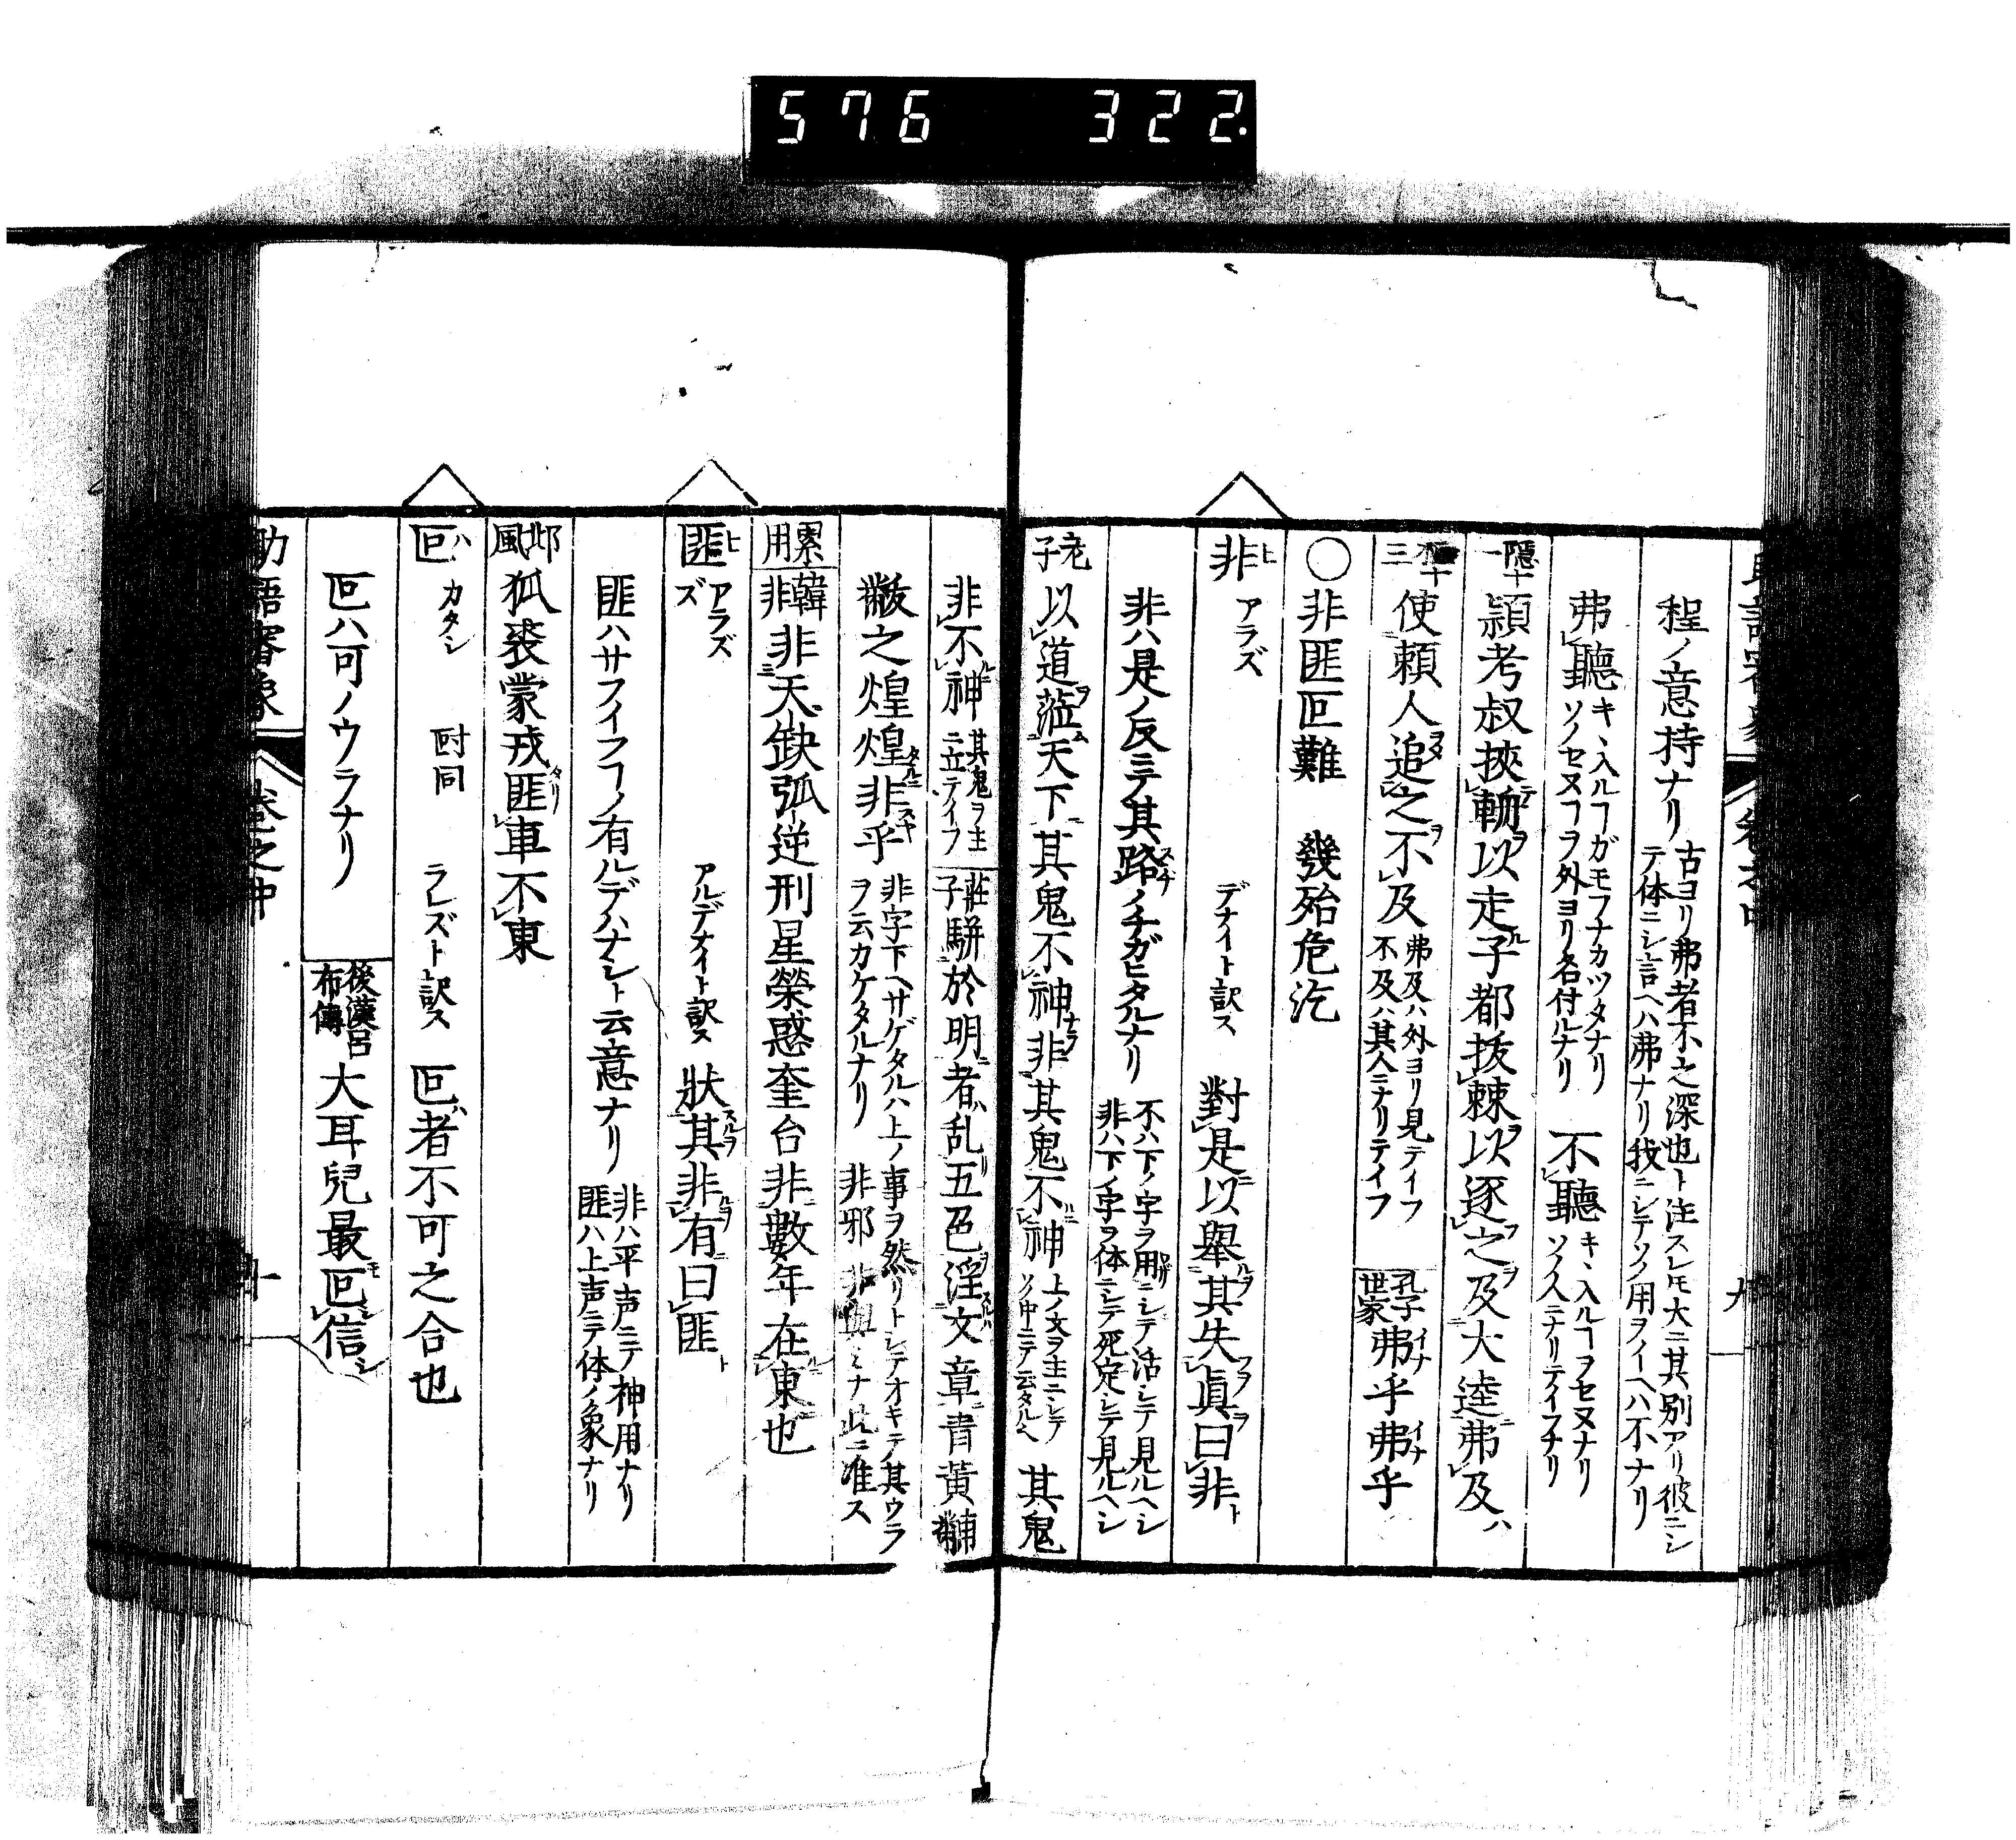 576 322.
程ノ意持ナリ 古ヨリ弗者不之深也ト注スレモ大ニ其別アリ彼ニシ
テ体ニシ言ヘハ弗ナリ我ニシテソノ用ヲイヘハ不ナリ
弗聽 キヽ入ルヿガモフナカツタナリ
ソノセヌヿヲ外ヨリ名付ルナリ
不聽 キヽ入ルヿヲセヌナリ
ソノ人ニナリテイフナリ
隱十一 潁考叔挾輈以走子都拔棘以逐之及大逵弗及
十三 使賴人追之不及 弗及ハ外ヨリ見テイフ
不及ハ其人ニナリテイフ
孔子世家 弗乎弗乎
〇非匪叵難 幾殆危汔
非 ヒ アラズ デナイト訳ス 對是以舉其失眞曰非
非ハ是ノ反ニテ其路ノチガヒタルナリ 不ハ下ノ字ヲ用ニシテ活シテ見ルヘシ
非ハ下ノ字ヲ体ニシテ死定シテ見ルヘシ
老子 以道莅天下其鬼不神非其鬼不神 上ノ文ヲ主ニシテ
ソノ中ニテ云タルヘ
其鬼
非不神 其鬼ヲ主
ニ立テイフ
莊子 駢於明者乱五色淫文章青黃黼
黻之煌煌非乎 非字下ヘサゲタルハ上ノ事ヲ然リトシテオキテ其ウラ
ヲ云カケタルナリ 非邪 非與ミナ此ニ准ス
累用 韓非 非天缺弧逆刑星熒惑奎台非數年在東也
匪 ヒ アラズ アルデナイト訳ス 狀其非有曰匪
匪ハサフイフヿノ有ルデハナシト云意ナリ 非ハ平声ニテ神用ナリ
匪ハ上声ニテ体ノ象ナリ
邶風 狐裘蒙戎匪車不東
叵 ハ カタシ 𠵇同 ラレズト訳ス 叵者不可之合也
叵ハ可ノウラナリ 後漢呂布傳 大耳兒最叵信
助語審象 卷之中